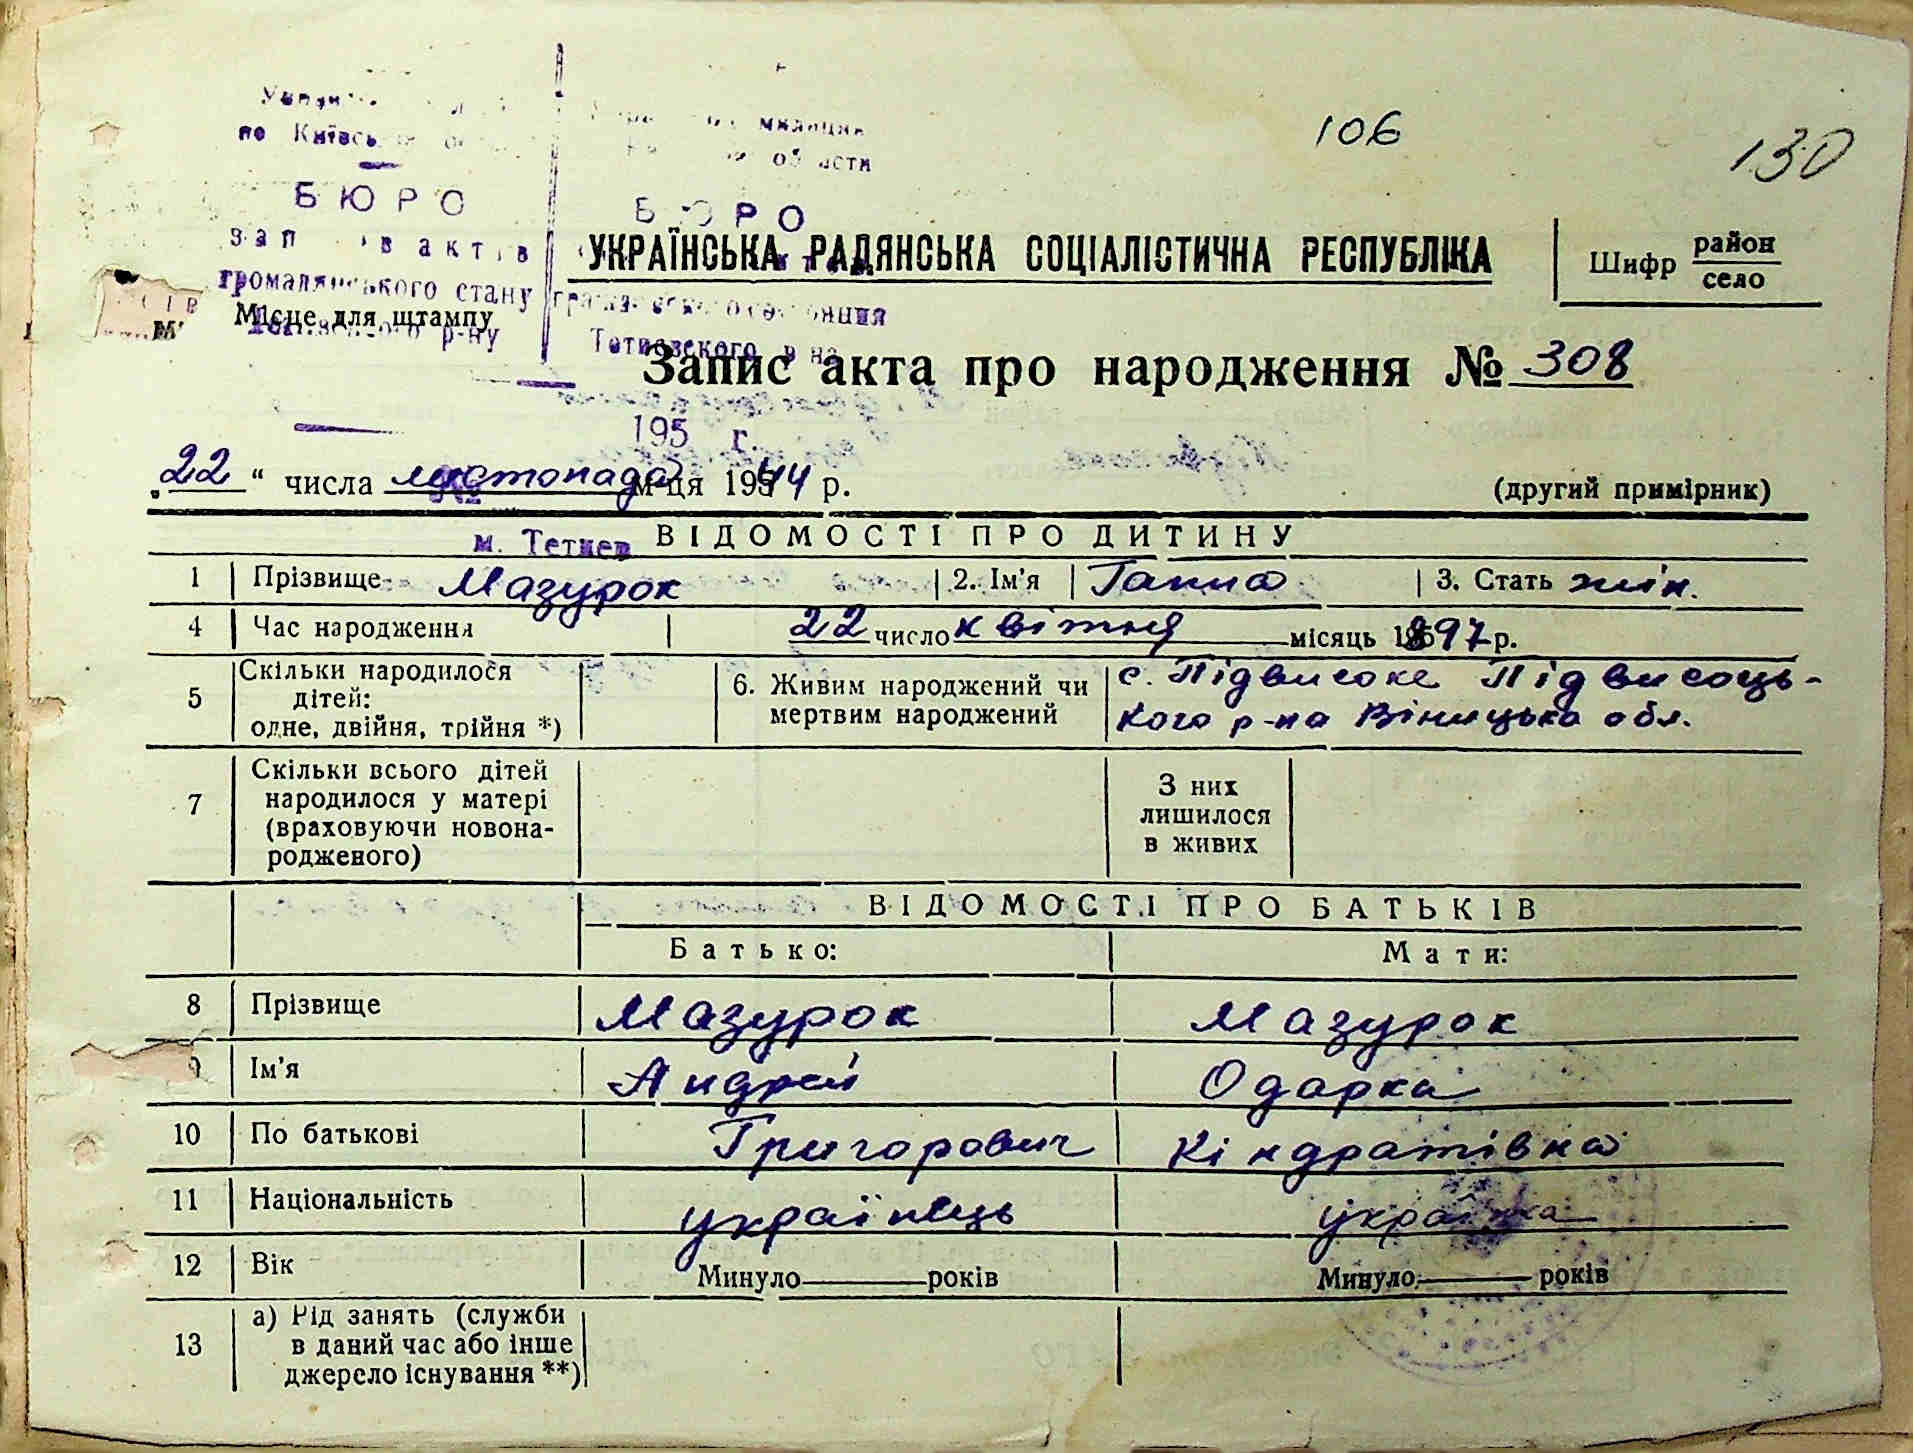 106
130
по Київсь
милиции
области
БЮРО
БЮРО
актів
УКРАЇНСЬКА РАДЯНСЬКА СОЦІАЛІСТИЧНА РЕСПУБЛІКА
Шифр район
село
громадянського стану
Місце для штампу
р-ну
Тетиевского р-на
Запис акта про народження № 308
195 г.
„22“ числа листопада м-ця 1944 р.
(другий примірник)
м. Тетиев
ВІДОМОСТІ ПРО ДИТИНУ
1 Прізвище Мазурок 2. Ім'я Ганна 3. Стать жін.
4 Час народження 22 число квітня місяць 1897 р.
5 Скільки народилося
дітей:
одне, двійня, трійня *)
6. Живим народжений чи
мертвим народжений
с. Підвисоке Підвисоць-
кого р-на Віницька обл.
7 Скільки всього дітей
народилося у матері
(враховуючи новона-
родженого)
З них
лишилося
в живих
ВІДОМОСТІ ПРО БАТЬКІВ
Батько: Мати:
8 Прізвище Мазурок Мазурок
9 Ім'я Андрей Одарка
10 По батькові Григорович Кіндратівна
11 Національність українець українка
12 Вік Минуло років Минуло років
13 а) Рід занять (служби
в даний час або інше
джерело існування **)